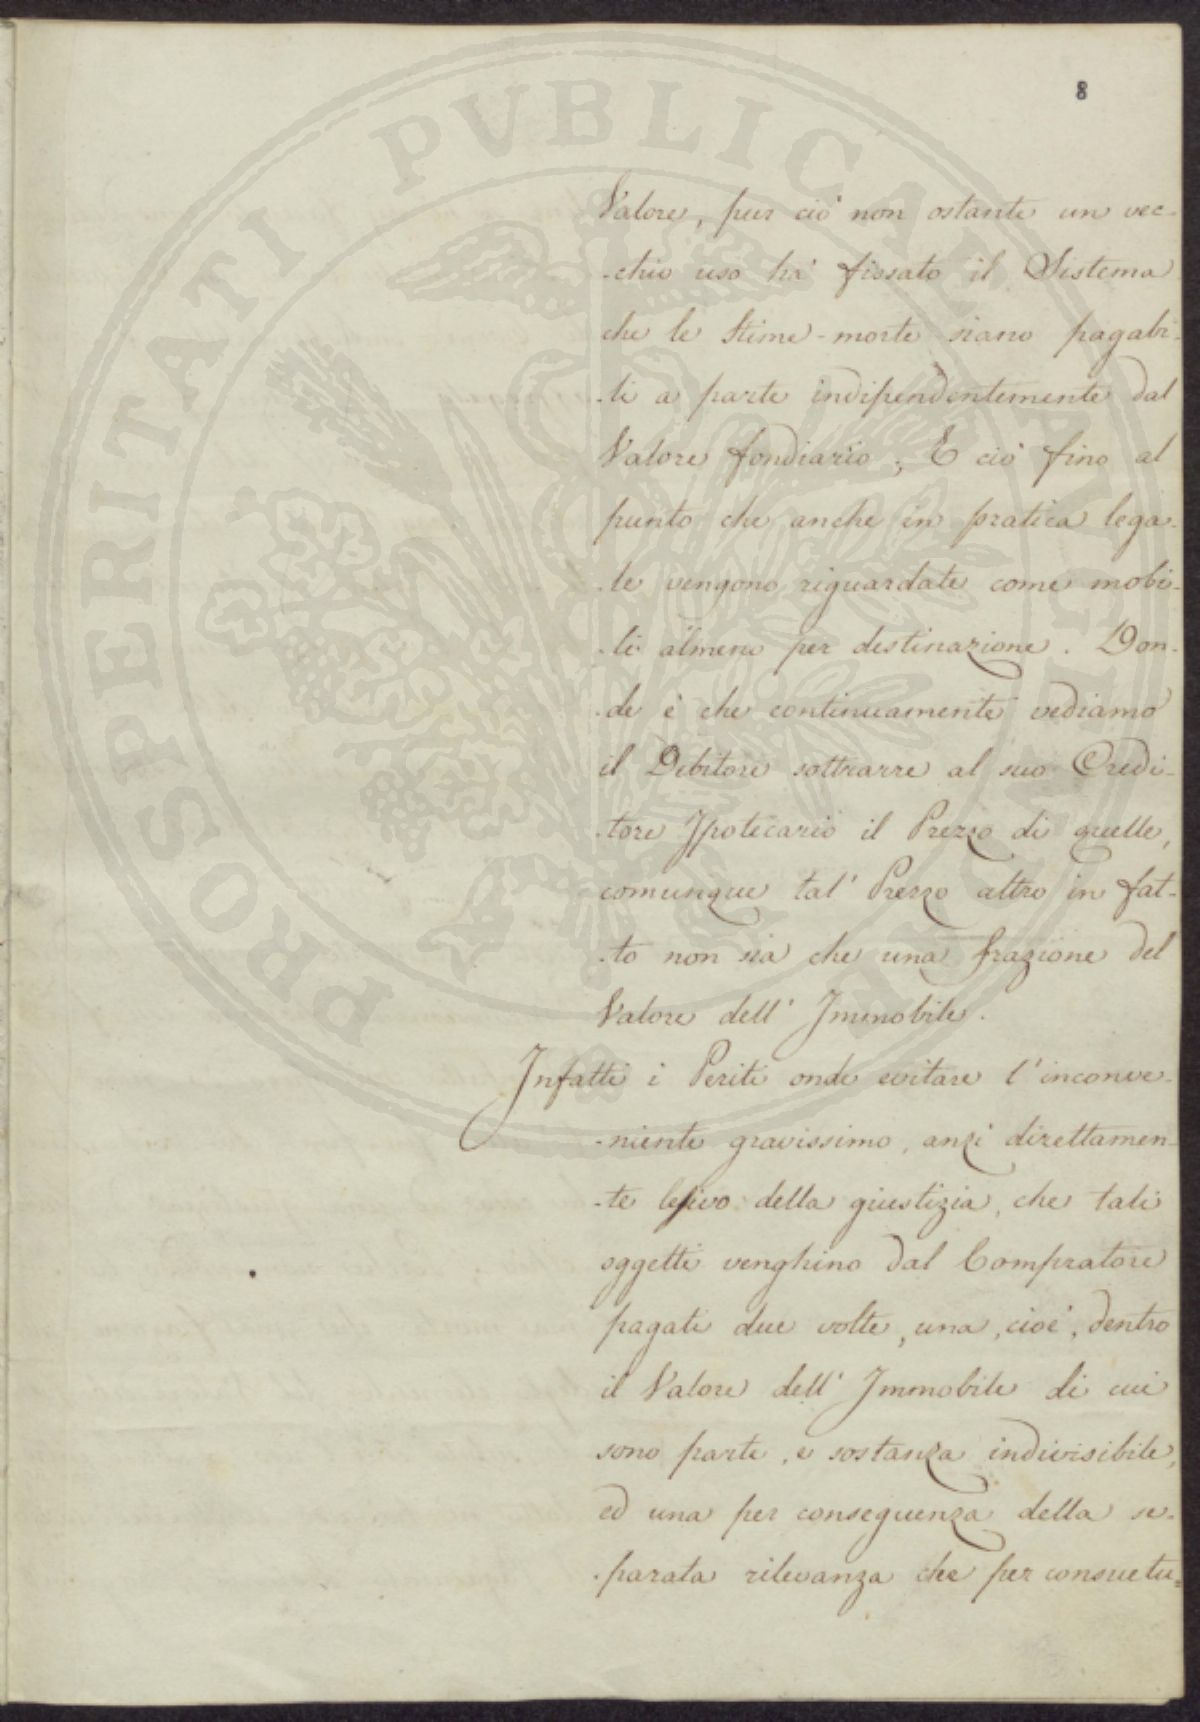 8
PROSPERITATI PVBLICAE AVGENDAE
Valore, pur ciò non ostante un vec-
-chio uso ha' fissato il Sistema
che le Stime-morte siano pagabi-
-li a parte indipendentemente dal
Valore fondiario; E ciò fino al
punto che anche in pratica lega-
-le vengono riguardate come mobi-
-li almeno per destinazione. Don-
-de è che continuamente vediamo
il Debitore sottrarre al suo Credi-
-tore Ipotecario il Prezzo di quelle,
comunque tal' Prezzo altro in fat-
-to non sia che una frazione del
Valore dell' Immobile.
Infatti i Periti onde evitare l'inconve-
-niente gravissimo, anzi direttamen-
-te lesivo della giustizia, che tali
oggetti venghino dal Compratore
pagati due volte, una, cioè, dentro
il Valore dell' Immobile di cui
sono parte, e sostanza indivisibile,
ed una per conseguenza della se-
-parata rilevanza che per consuetu=